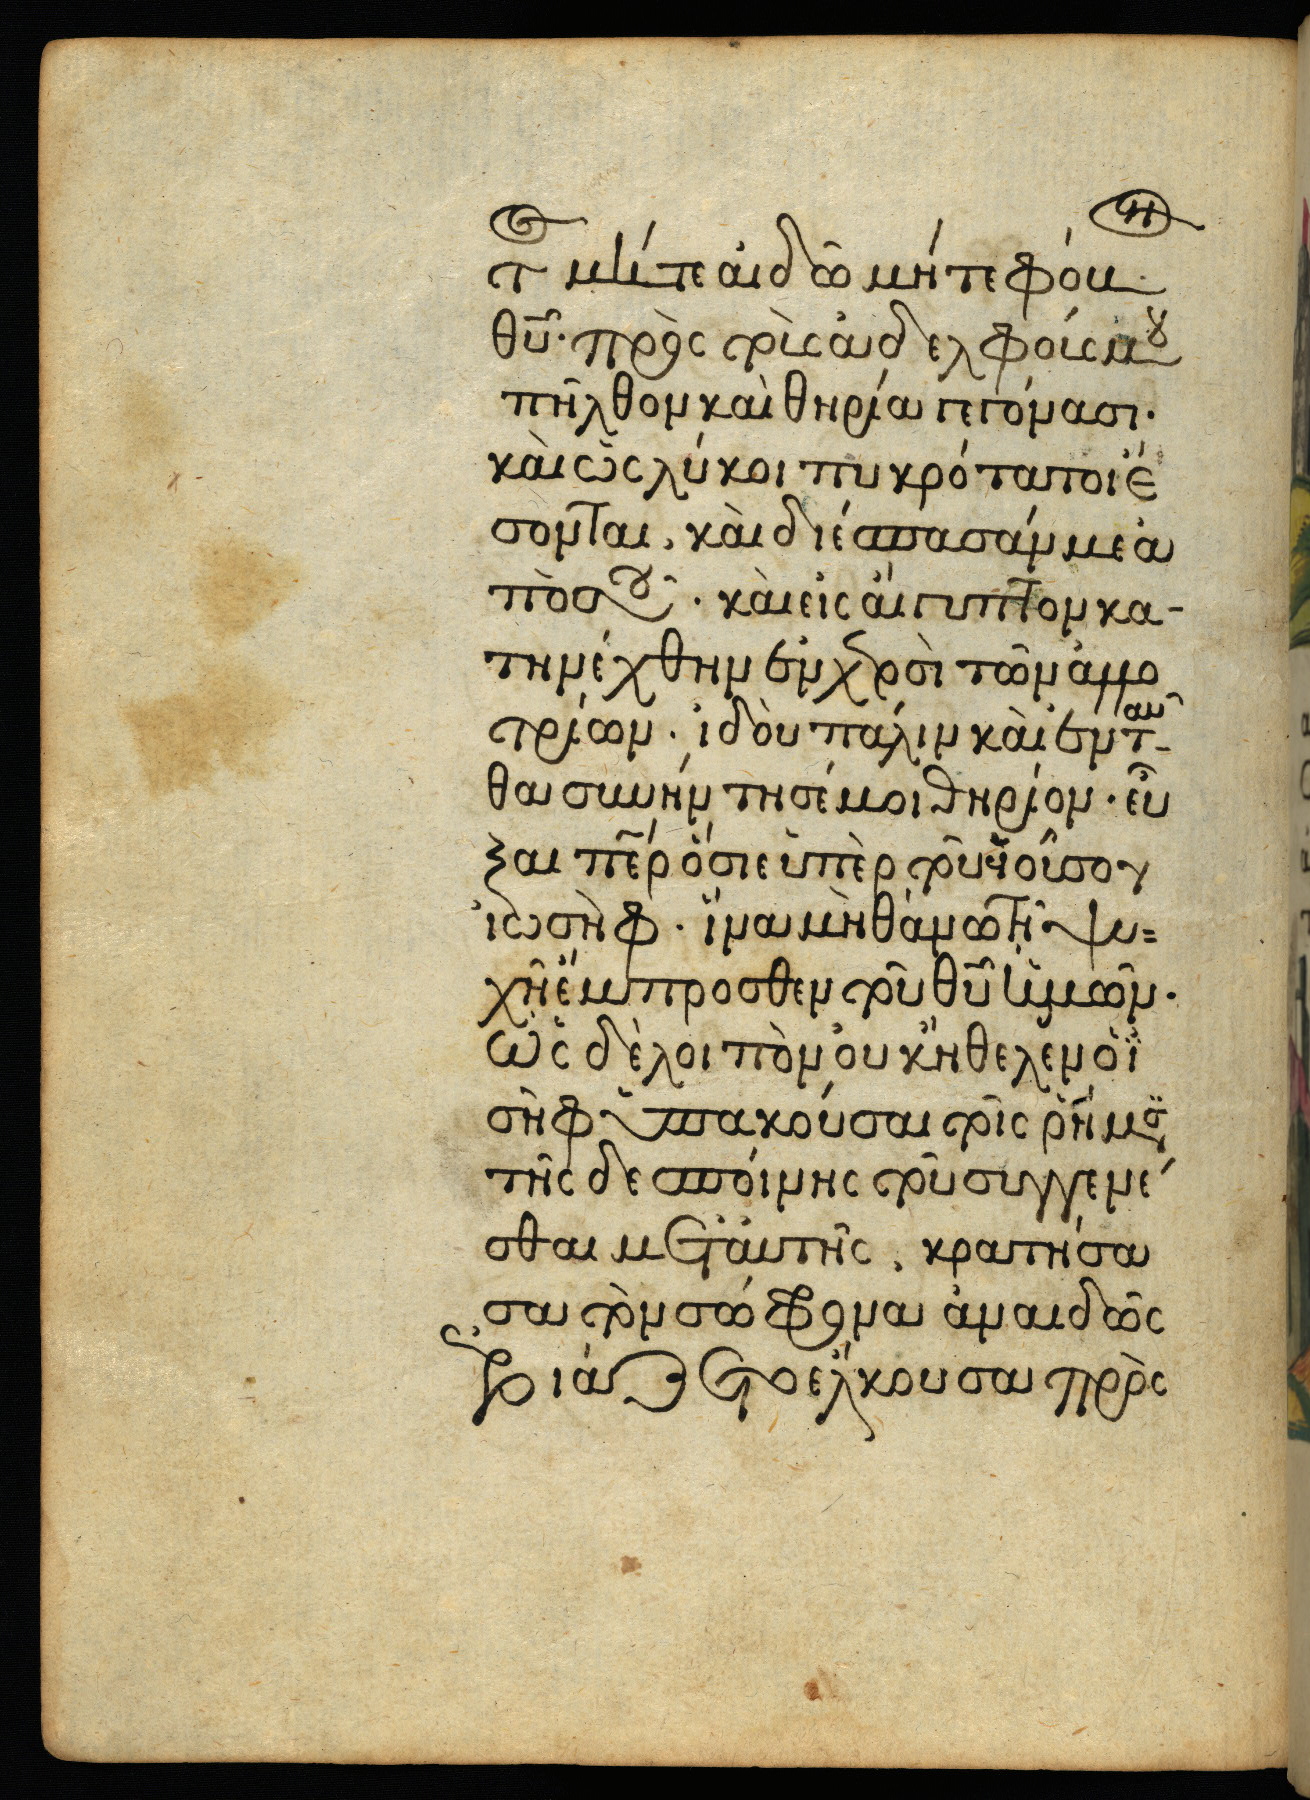 τ μήτε αἰδῶ μήτε φόβον
θῦ· πρὸς τοὺς ἀδελφούς μου
ἦλθον καὶ θηρία γεγόνασι·
καὶ ὡς λύκοι πικρότατοι ἐ
σονται, καὶ διέσπασάν με ἀ
πὸ σοῦ· καὶ εἰς αἴγυπτον κα-
τηνέχθην ἐν χερσὶ τῶν ἀλλο
τρίων· ἰδοὺ πάλιν καὶ ἐνταῦ-
θα συνήντησέ μοι θηρίον· εὖ
ξαι πέρ ὅσιε ὑπὲρ τοῦ σου
ἰωσὴφ· ἵνα μὴ θάνω τῇ ψυ=
χῇ ἔμπροσθεν τοῦ θῦ ἡμῶν·
ὡς δὲ λοιπὸν οὐκ ἤθελεν ὁ ἰ
σὴφ ὑπακοῦσαι τοῖς ῥήμασι
τῆς δεσποίνης τοῦ συγγενέ
σθαι μετ' αὐτῆς, κρατήσα
σα τὸν σώφρονα ἀναιδῶς
ἐβιάζετο ἕλκουσα πρὸς